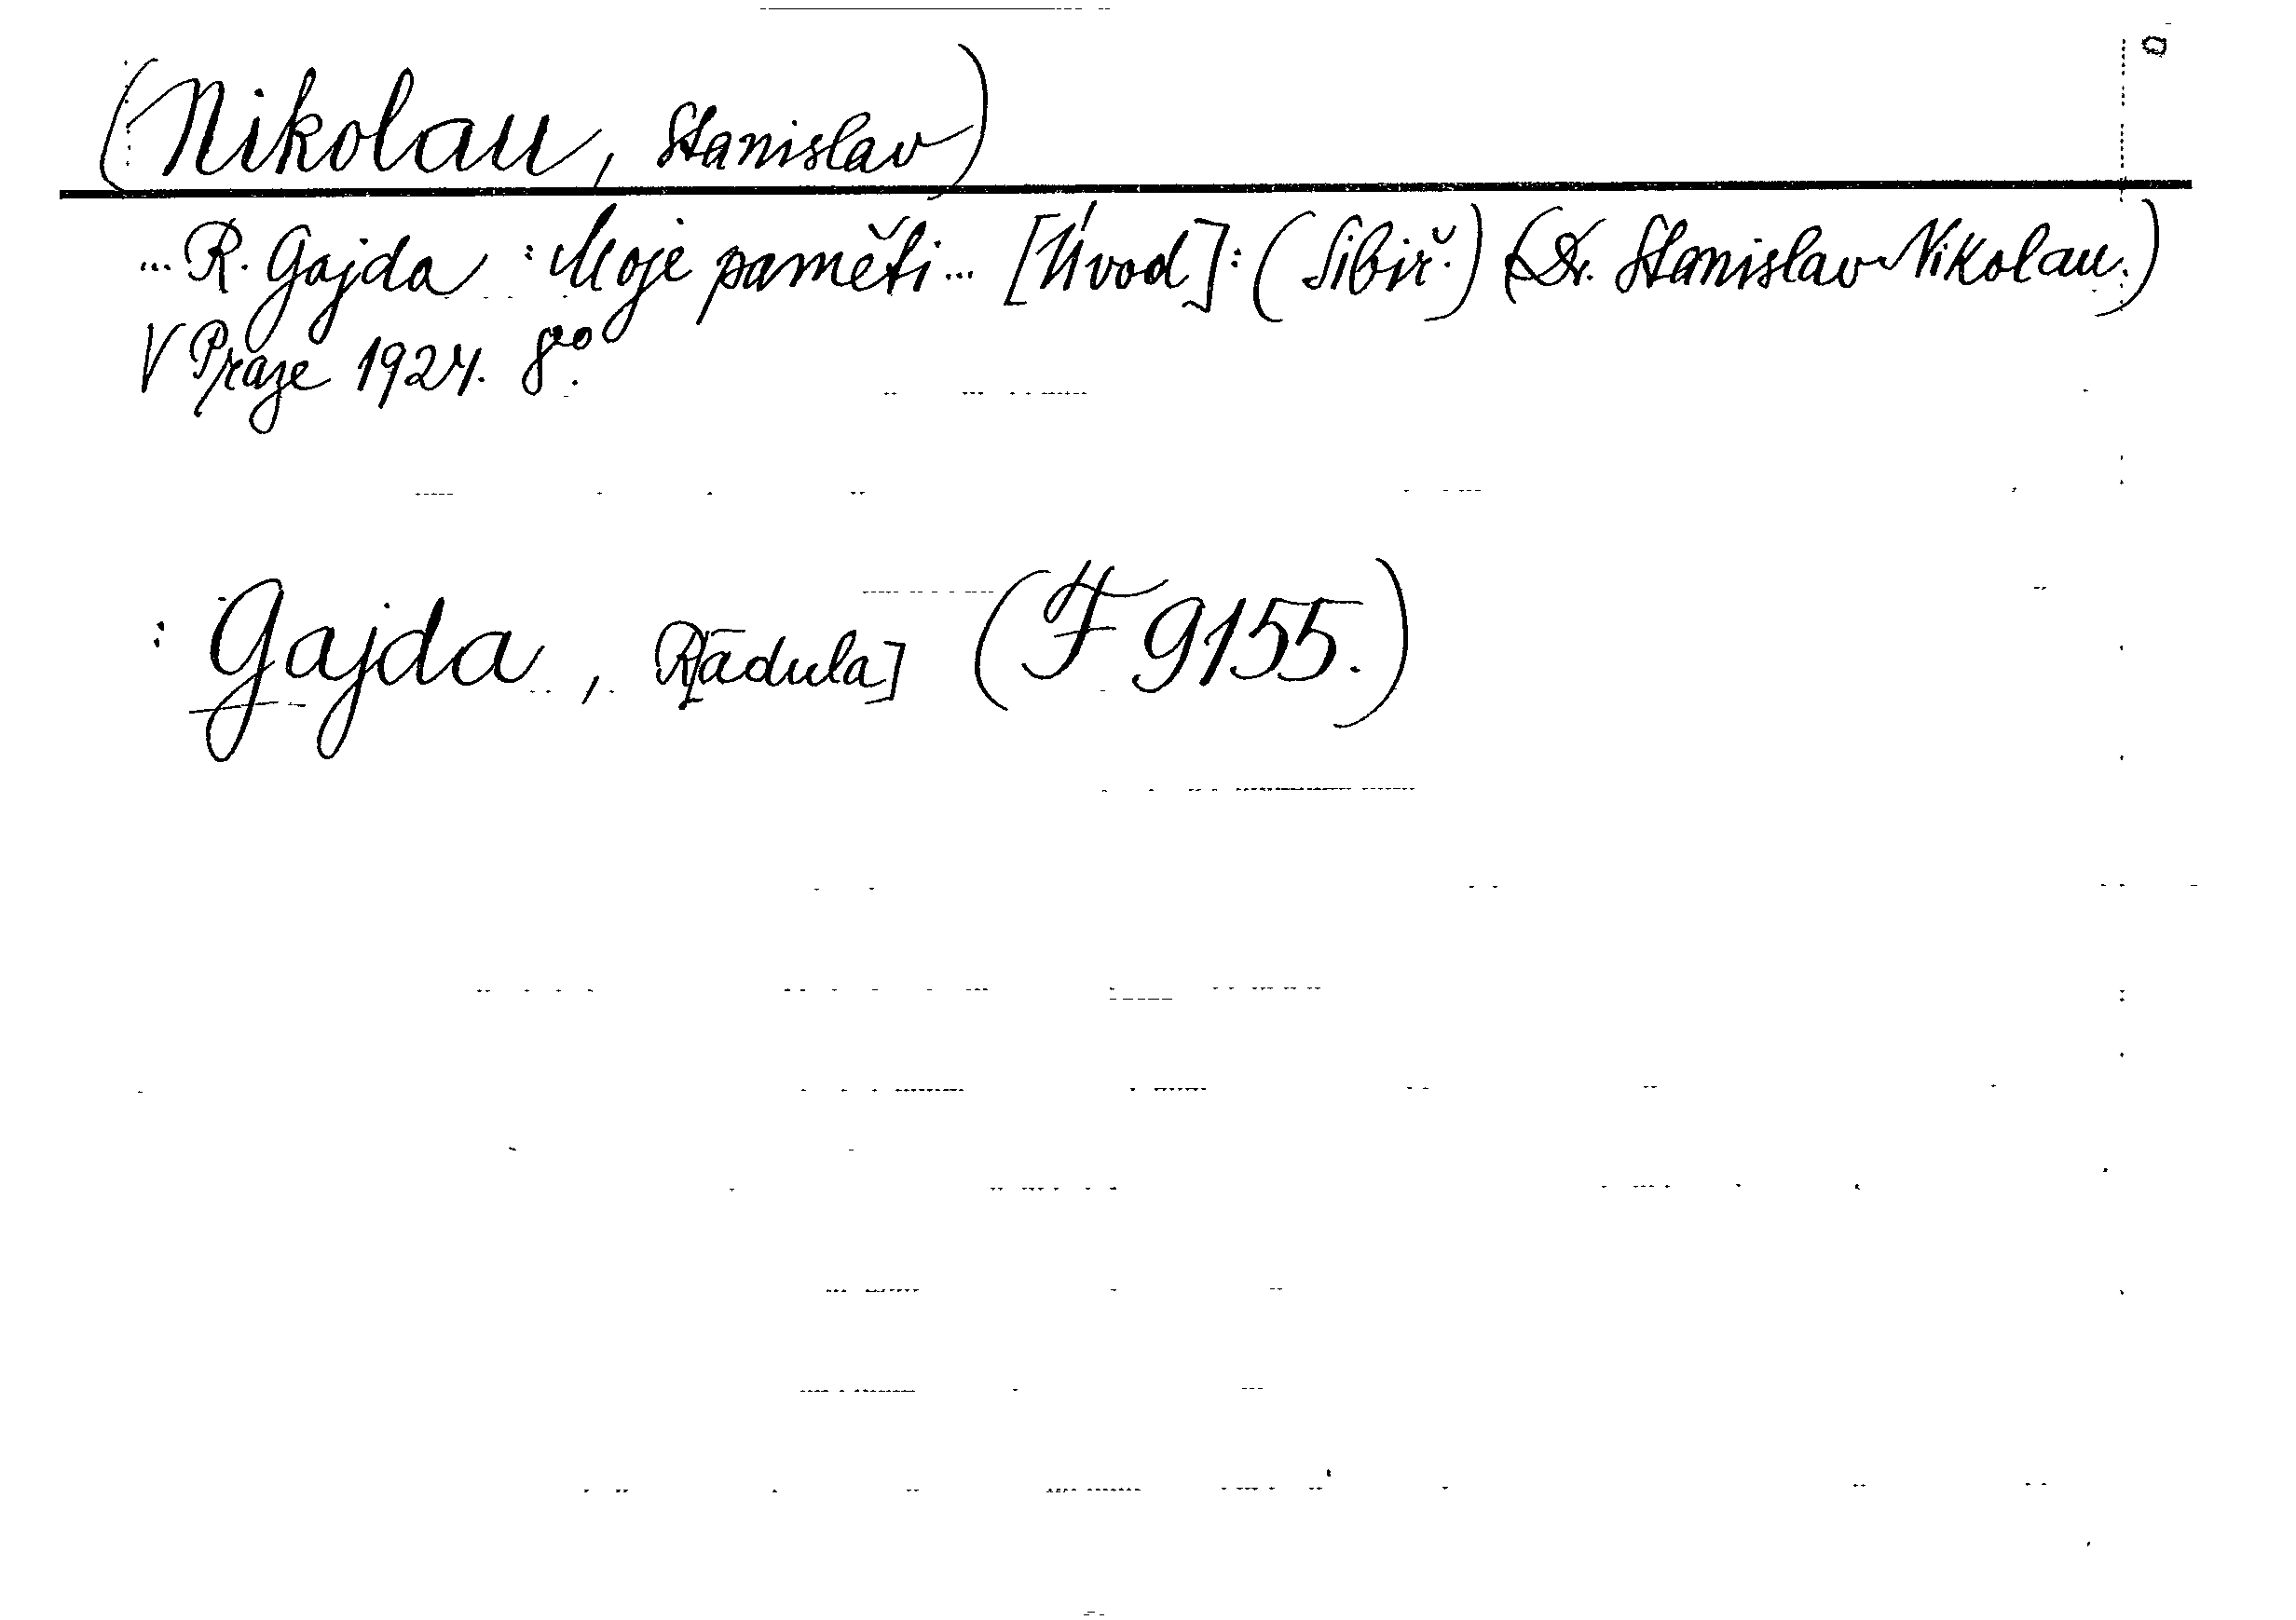 (Nikolau, Stanislav)
... R. Gajda : Moje paměti ... [Úvod]: (Sibiř.) (Dr. Stanislav Nikolau.)
V Praze 1924. 8°.
: Gajda, R[adula] (F 9155.)